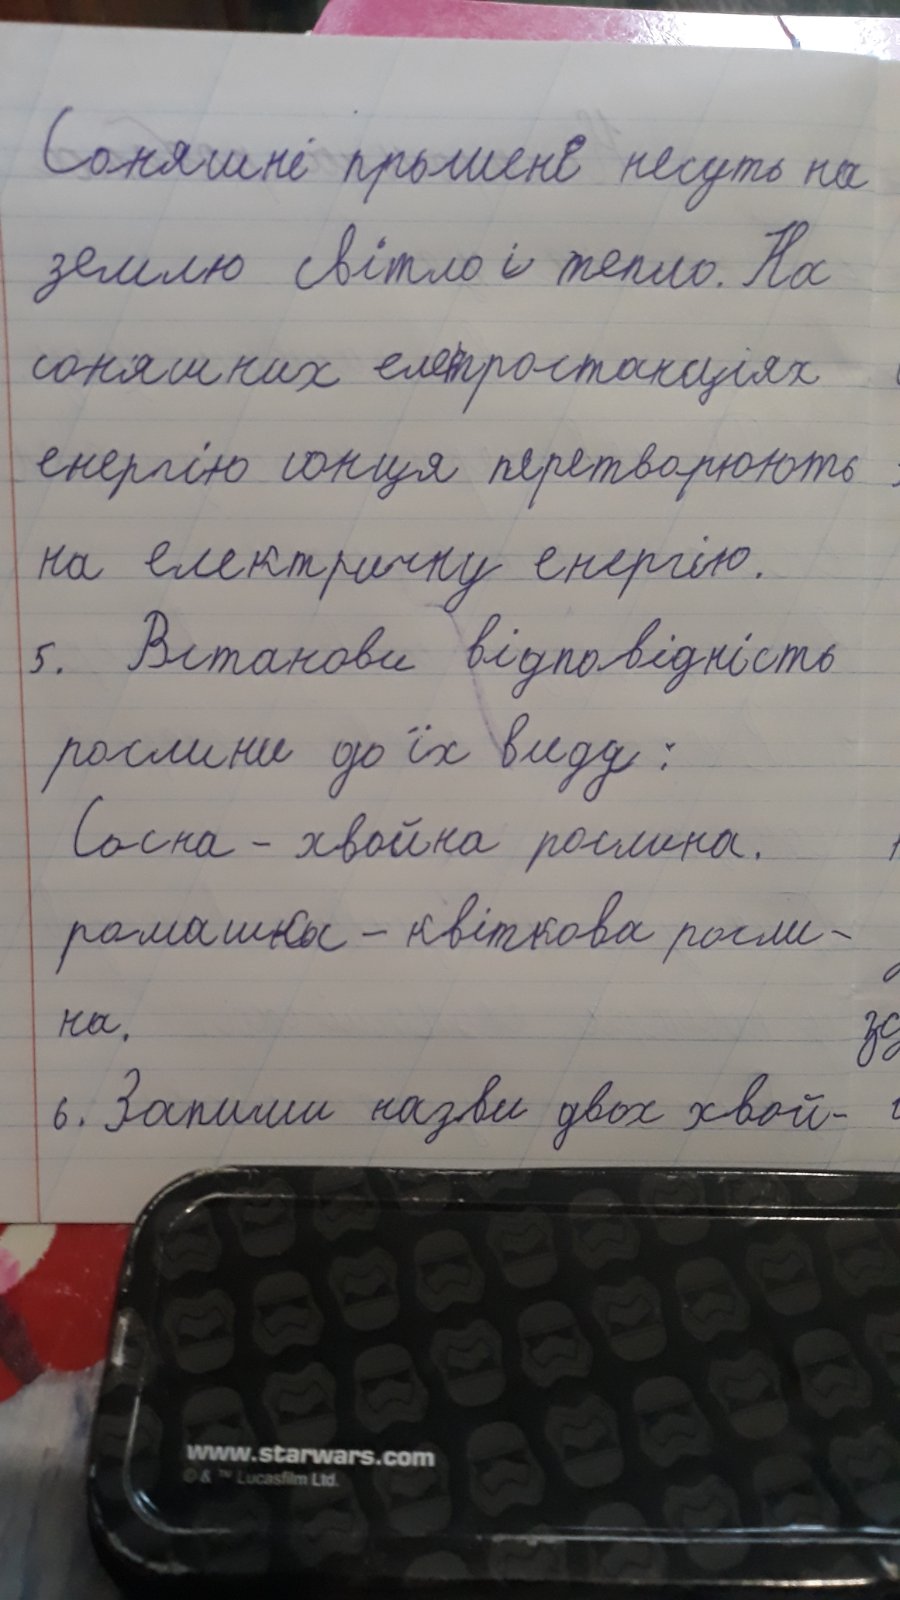 Соняшні прьмені несуть на
землю світло і тепло. На
соняшних електростанціях
енергію сонця перетворюють
на електричну енергію.
5. Встанови відповідність
рослини до їх виду:
Сосна - хвойна рослина.
ромашка - квіткова росли-
на.
зд
6. Запиши назви двох хвой-
www.starwars.com
© & ™ Lucasfilm Ltd.